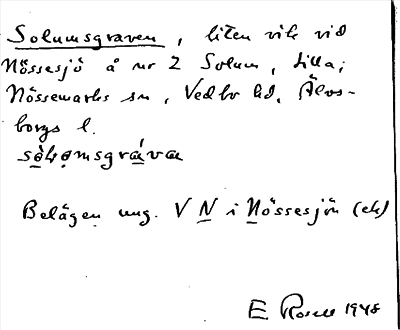 Solumsgraven, liten vik vid
Nössesjö å nr 2 Solum, lilla;
Nössemarks sn, Vedbo hd, Älvs-
borgs l.
Belägen ung. V N i Nössesjön (ek)
E Rosell 1948